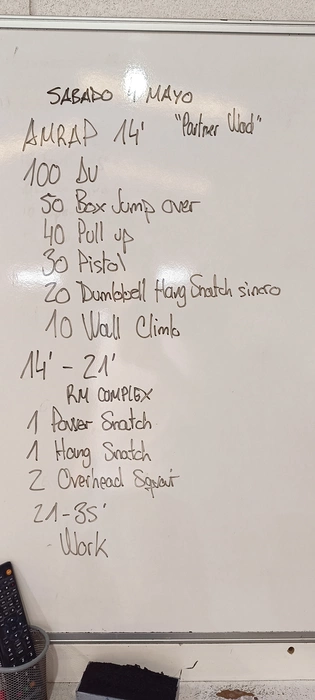 SABADO 9 MAYO
AMRAP 14' "Partner Wod"
100 DU
50 Box Jump over
40 Pull up
30 Pistol
20 Dumbbell Hang Snatch sincro
10 Wall Climb
14' - 21'
RM COMPLEX
1 Power Snatch
1 Hang Snatch
2 Overhead Squat
21-35'
- Work